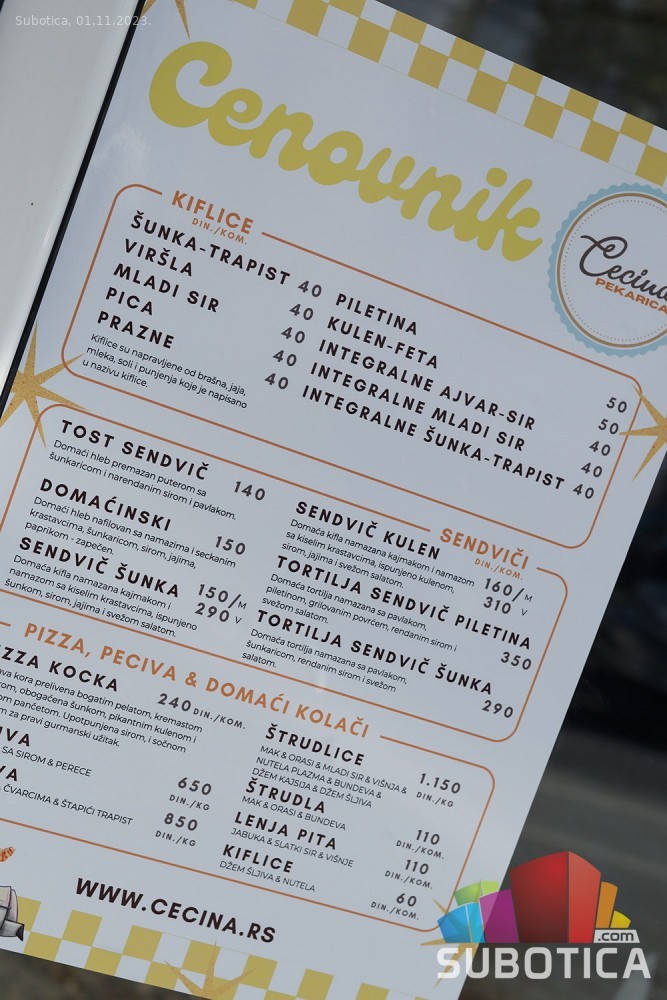 Subotica, 01.11.2023.
Cenovnik
Cecina
PEKARICA
KIFLICE
DIN./KOM.
ŠUNKA-TRAPIST 40
VIRŠLA 40
MLADI SIR 40
PICA 40
PRAZNE 40
Kiflice su napravljene od brašna, jaja,
mleka, soli i punjenja koje je napisano
u nazivu kiflice.
PILETINA 50
KULEN-FETA 50
INTEGRALNE AJVAR-SIR 40
INTEGRALNE MLADI SIR 40
INTEGRALNE ŠUNKA-TRAPIST 40
SENDVIČI
DIN./KOM.
TOST SENDVIČ 140
Domaći hleb premazan puterom sa
šunkaricom i narendanim sirom i pavlakom.
DOMAĆINSKI 150
Domaći hleb nafilovan sa namazima i seckanim
krastavcima, šunkaricom, sirom, jajima,
paprikom - zapečen.
SENDVIČ ŠUNKA 150/M
290 V
Domaća kifla namazana kajmakom i
namazom sa kiselim krastavcima, ispunjeno
šunkom, sirom, jajima i svežom salatom.
SENDVIČ KULEN 160/M
310 V
Domaća kifla namazana kajmakom i namazom
sa kiselim krastavcima, ispunjeno kulenom,
sirom, jajima i svežom salatom.
TORTILJA SENDVIČ PILETINA 350
Domaća tortilja namazana sa pavlakom,
piletinom, grilovanim povrćem, rendanim sirom i
svežom salatom.
TORTILJA SENDVIČ ŠUNKA 290
Domaća tortilja namazana sa pavlakom,
šunkaricom, rendanim sirom i svežom
salatom.
PIZZA, PECIVA & DOMAĆI KOLAČI
ZZA KOCKA 240 DIN./KOM.
ava kora prelivena bogatim pelatom, kremastom
rom, obogaćena šunkom, pikantnim kulenom i
om pančetom. Upotpunjena sirom, i sočnom
m za pravi gurmanski užitak.
IVA 650
DIN./KG
SA SIROM & PERECE
VA 850
DIN./KG
ČVARCIMA & ŠTAPIĆI TRAPIST
ŠTRUDLICE 1.150
DIN./KG
MAK & ORASI & MLADI SIR & VIŠNJA &
NUTELA PLAZMA & BUNDEVA &
DŽEM KAJSIJA & DŽEM ŠLJIVA
ŠTRUDLA 110
DIN./KOM.
MAK & ORASI & BUNDEVA
LENJA PITA 110
DIN./KOM.
JABUKA & SLATKI SIR & VIŠNJE
KIFLICE 60
DIN./KOM.
DŽEM ŠLJIVA & NUTELA
WWW.CECINA.RS
.com
SUBOTICA